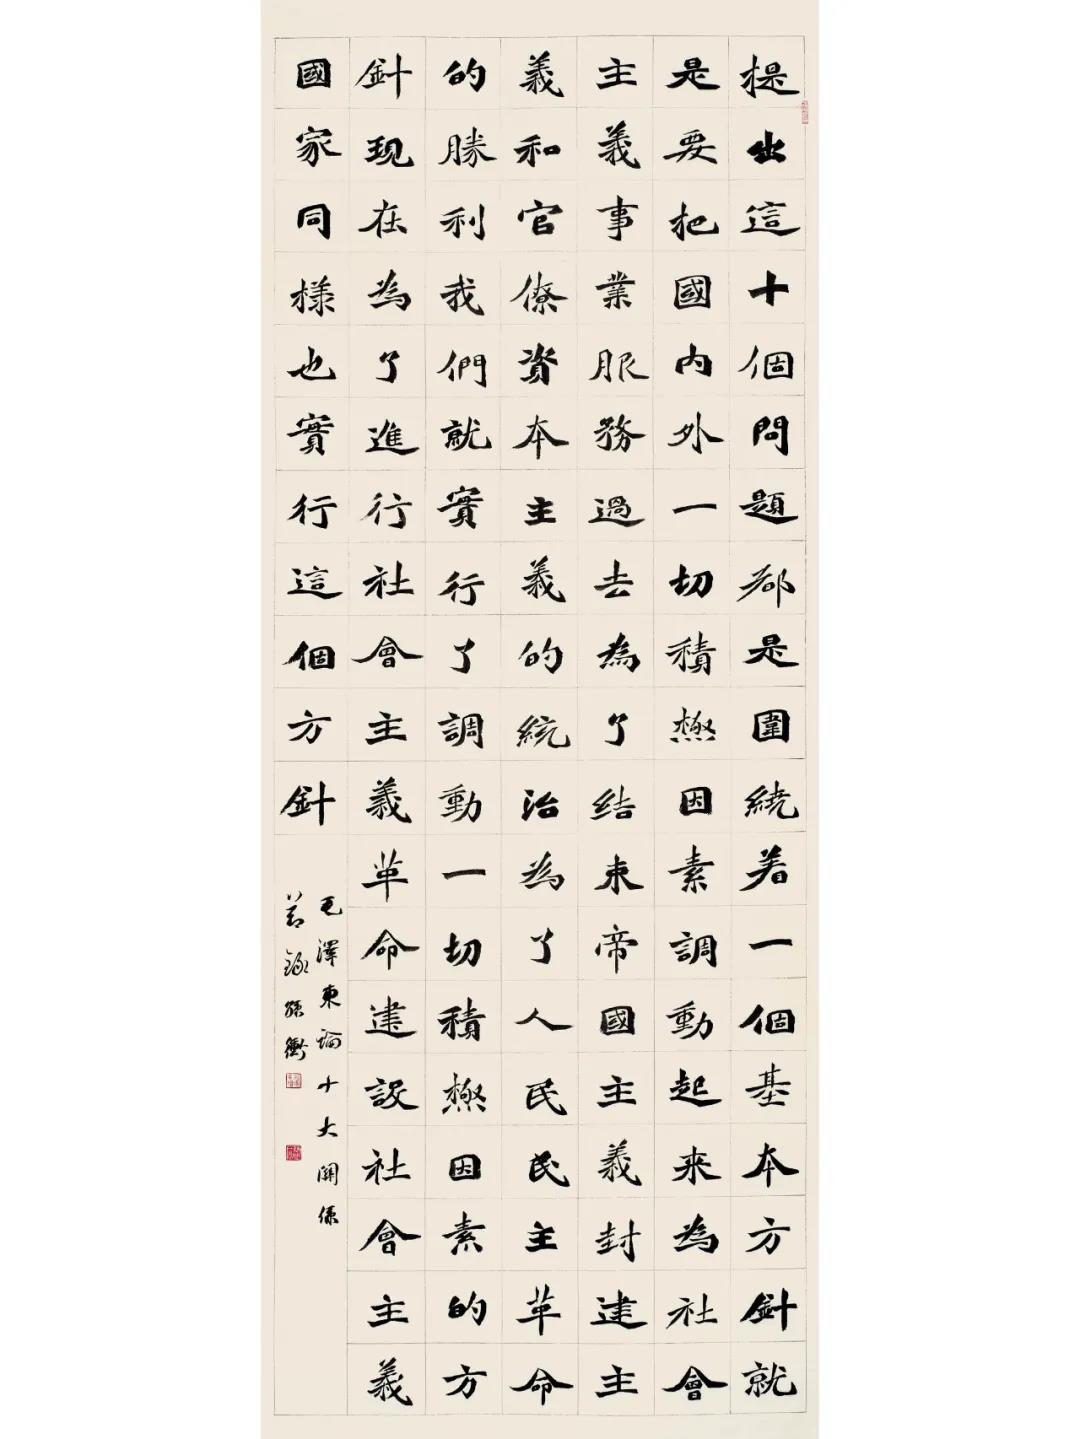 提出這十個問題都是圍繞着一個基本方針就
是要把國內外一切積極因素調動起来為社會
主義事業服務過去為了结束帝國主義封建主
義和官僚資本主義的統治為了人民民主革命
的勝利我們就實行了調動一切積極因素的方
針現在為了進行社會主義革命建設社會主義
國家同樣也實行這個方針
毛澤東論十大關係
節錄 張衝